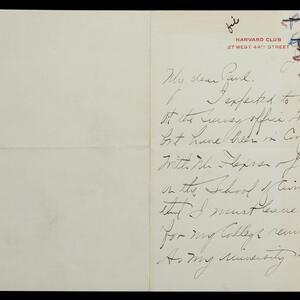 file
HARVARD CLUB
27 WEST 44TH STREET
My dear Paul.
I expected to
at the Survey office
but have been in
With Mr Flexner
on the School of
that I must leave
For my College
As my University